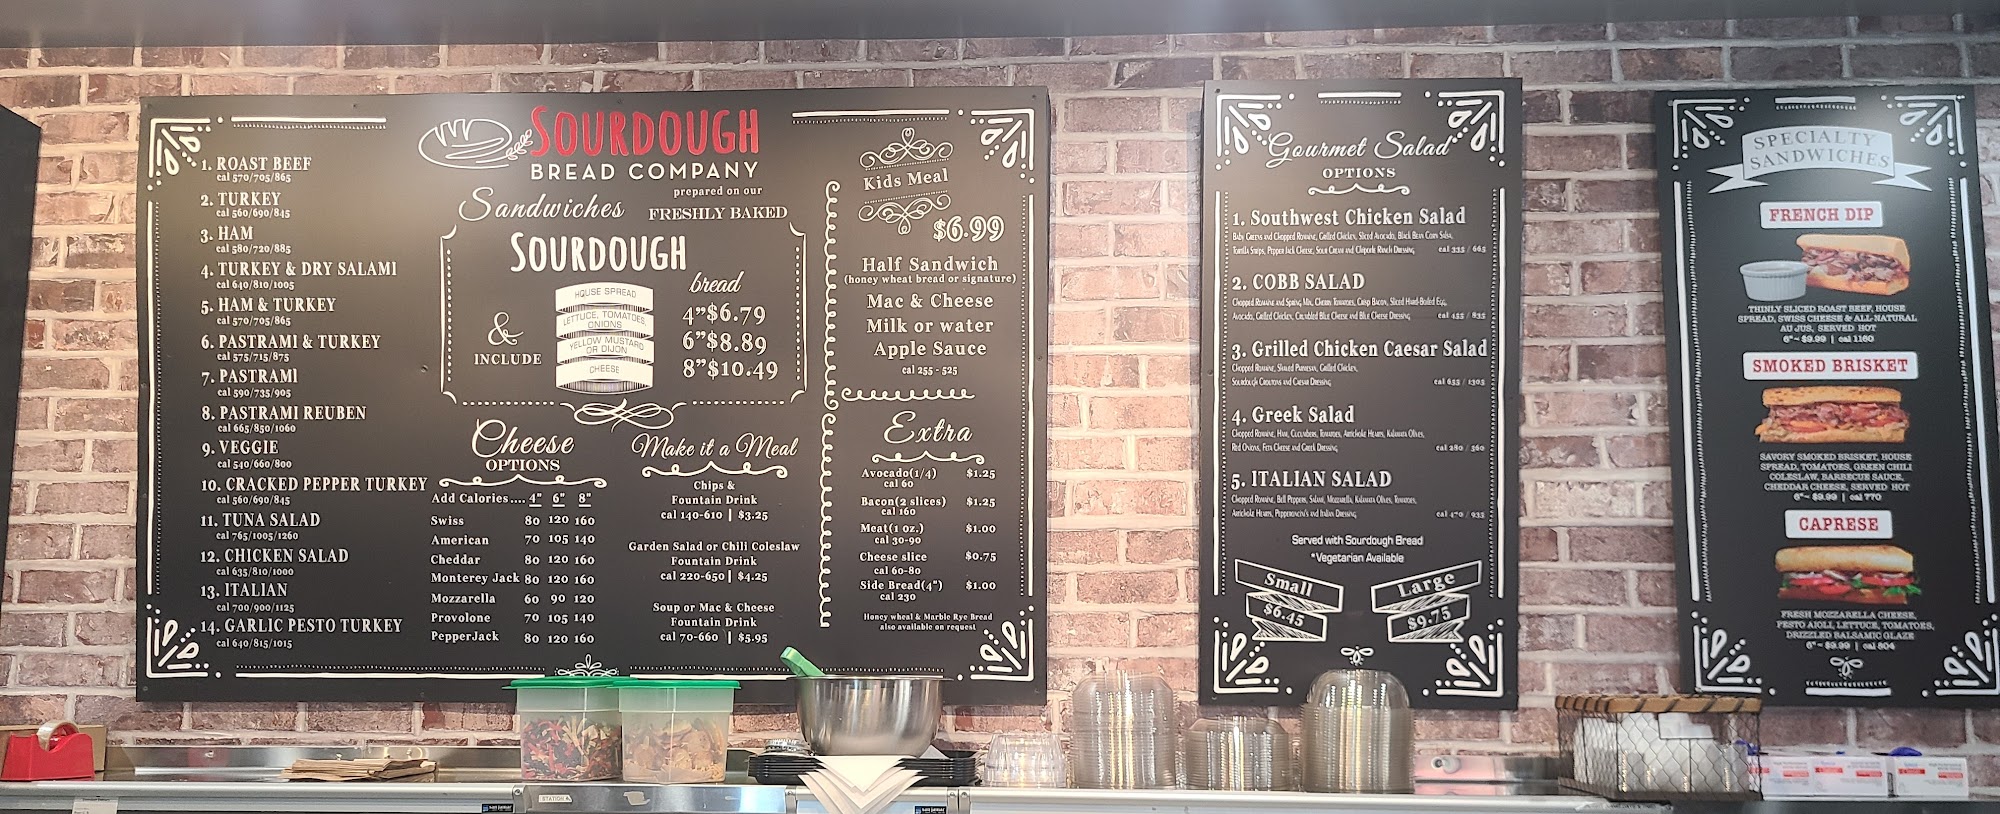 SOURDOUGH
BREAD COMPANY
Sandwiches
prepared on our
FRESHLY BAKED
SOURDOUGH
bread
& INCLUDE
HOUSE SPREAD
LETTUCE, TOMATOES,
ONIONS
YELLOW MUSTARD
OR DIJON
CHEESE
4" $6.79
6" $8.89
8" $10.49
1. ROAST BEEF
cal 570/705/865
2. TURKEY
cal 560/690/845
3. HAM
cal 580/720/885
4. TURKEY & DRY SALAMI
cal 640/810/1005
5. HAM & TURKEY
cal 570/705/865
6. PASTRAMI & TURKEY
cal 575/715/875
7. PASTRAMI
cal 590/735/905
8. PASTRAMI REUBEN
cal 665/850/1060
9. VEGGIE
cal 540/660/800
10. CRACKED PEPPER TURKEY
cal 560/690/845
11. TUNA SALAD
cal 765/1005/1260
12. CHICKEN SALAD
cal 635/810/1000
13. ITALIAN
cal 700/900/1125
14. GARLIC PESTO TURKEY
cal 640/815/1015
Cheese
OPTIONS
Add Calories.... 4" 6" 8"
Swiss 80 120 160
American 70 105 140
Cheddar 80 120 160
Monterey Jack 80 120 160
Mozzarella 60 90 120
Provolone 70 105 140
PepperJack 80 120 160
Make it a Meal
Chips &
Fountain Drink
cal 140-610 | $3.25
Garden Salad or Chili Coleslaw
Fountain Drink
cal 220-650 | $4.25
Soup or Mac & Cheese
Fountain Drink
cal 70-660 | $5.95
Kids Meal
$6.99
Half Sandwich
(honey wheat bread or signature)
Mac & Cheese
Milk or water
Apple Sauce
cal 255 - 525
Extra
Avocado(1/4) $1.25
cal 60
Bacon(2 slices) $1.25
cal 160
Meat(1 oz.) $1.00
cal 30-90
Cheese slice $0.75
cal 60-80
Side Bread(4") $1.00
cal 230
Honey wheal & Marble Rye Bread
also available on request
Gourmet Salad
OPTIONS
1. Southwest Chicken Salad
Baby Greens and Chopped Romaine, Grilled Chicken, Sliced Avocado, Black Bean Corn Salsa,
Tortilla Strips, Pepper Jack Cheese, Sour Cream and Chipotle Ranch Dressing cal 335 / 665
2. COBB SALAD
Chopped Romaine and Spring Mix, Cherry Tomatoes, Crisp Bacon, Sliced Hard-Boiled Egg,
Avocado, Grilled Chicken, Crumbled Blue Cheese and Blue Cheese Dressing cal 455 / 835
3. Grilled Chicken Caesar Salad
Chopped Romaine, Shaved Parmesan, Grilled Chicken,
Sourdough Croutons and Caesar Dressing cal 655 / 1305
4. Greek Salad
Chopped Romaine, Ham, Cucumbers, Tomatoes, Artichoke Hearts, Kalamata Olives,
Red Onions, Feta Cheese and Greek Dressing cal 280 / 560
5. ITALIAN SALAD
Chopped Romaine, Bell Peppers, Salami, Mozzarella, Kalamata Olives, Tomatoes,
Artichoke Hearts, Pepperoncini's and Italian Dressing cal 470 / 935
Served with Sourdough Bread
*Vegetarian Available
Small
$6.45
Large
$9.75
SPECIALTY
SANDWICHES
FRENCH DIP
THINLY SLICED ROAST BEEF, HOUSE
SPREAD, SWISS CHEESE & ALL-NATURAL
AU JUS, SERVED HOT
6"~ $9.99 | cal 1160
SMOKED BRISKET
SAVORY SMOKED BRISKET, HOUSE
SPREAD, TOMATOES, GREEN CHILI
COLESLAW, BARBECUE SAUCE,
CHEDDAR CHEESE, SERVED HOT
6"~ $9.99 | cal 770
CAPRESE
FRESH MOZZARELLA CHEESE,
PESTO AIOLI, LETTUCE, TOMATOES,
DRIZZLED BALSAMIC GLAZE
6"~ $9.99 | cal 804